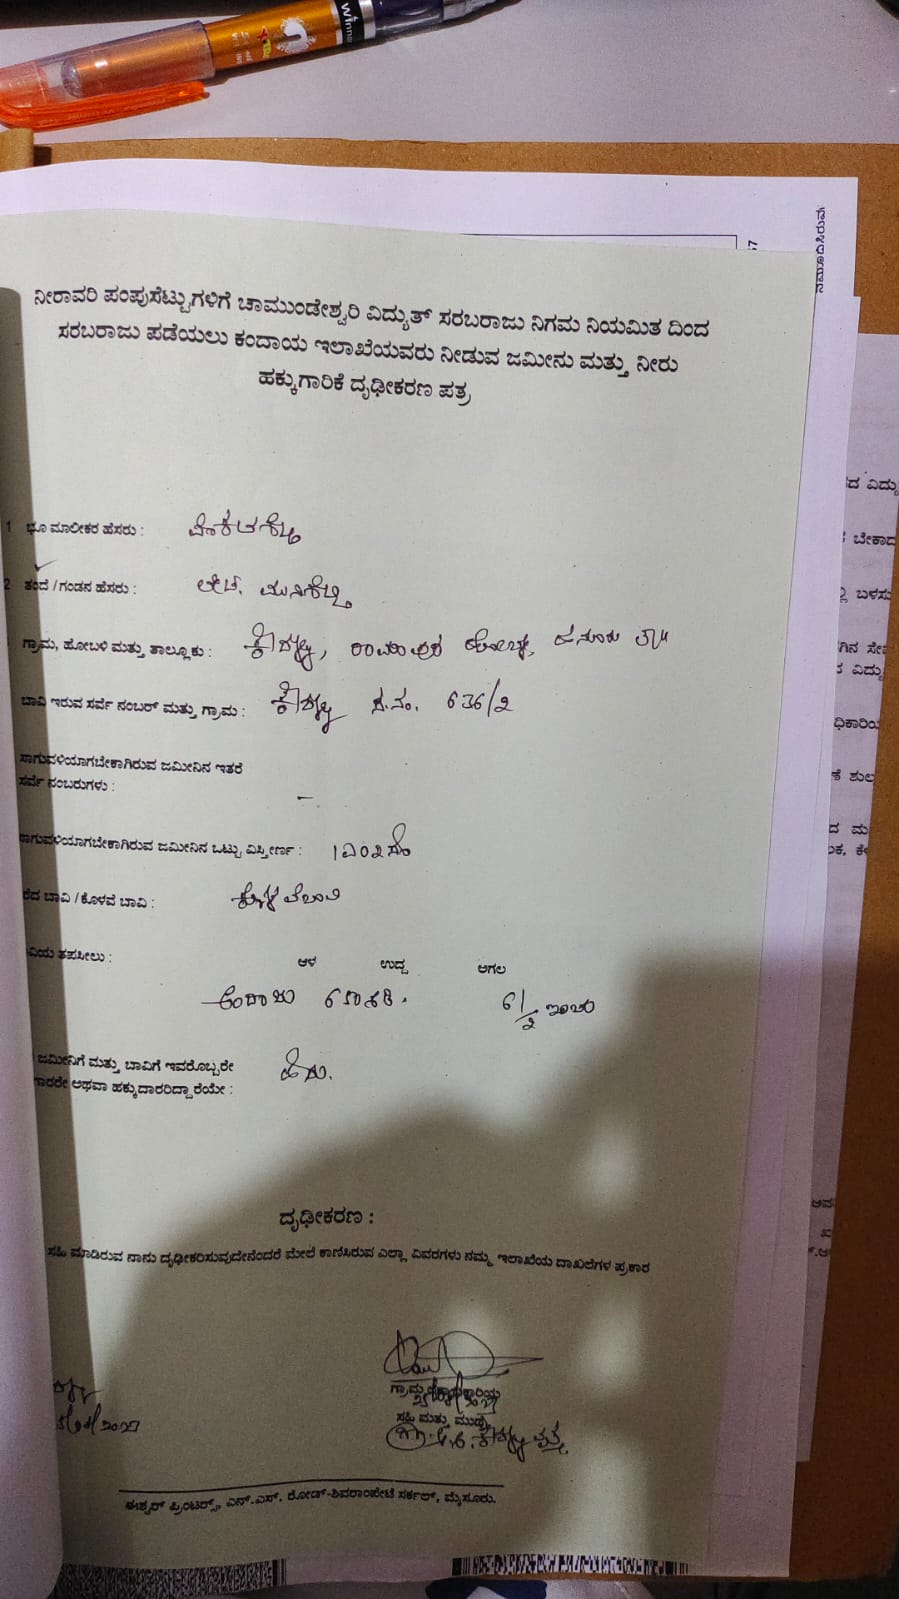 Winner
57
ನಮೂದಿಸಿರುವ
ನೀರಾವರಿ ಪಂಪುಸೆಟ್ಟುಗಳಿಗೆ ಚಾಮುಂಡೇಶ್ವರಿ ವಿದ್ಯುತ್ ಸರಬರಾಜು ನಿಗಮ ನಿಯಮಿತ ದಿಂದ
ಸರಬರಾಜು ಪಡೆಯಲು ಕಂದಾಯ ಇಲಾಖೆಯವರು ನೀಡುವ ಜಮೀನು ಮತ್ತು ನೀರು
ಹಕ್ಕುಗಾರಿಕೆ ದೃಢೀಕರಣ ಪತ್ರ
1 ಭೂ ಮಾಲೀಕರ ಹೆಸರು : ವೆಂಕಟಶೆಟ್ಟಿ
2 ತಂದೆ / ಗಂಡನ ಹೆಸರು : ಲೇಟ್. ಮುನಿಶೆಟ್ಟಿ
ಗ್ರಾಮ, ಹೋಬಳಿ ಮತ್ತು ತಾಲ್ಲೂಕು : ರಾಮಾಪುರ ಹೋಬಳಿ, ಹನೂರು ತಾ॥
ಬಾವಿ ಇರುವ ಸರ್ವೆ ನಂಬರ್ ಮತ್ತು ಗ್ರಾಮ : ಸ.ನಂ. 636/2
ಸಾಗುವಳಿಯಾಗಬೇಕಾಗಿರುವ ಜಮೀನಿನ ಇತರೆ
ಸರ್ವೆ ನಂಬರುಗಳು : –
ಸಾಗುವಳಿಯಾಗಬೇಕಾಗಿರುವ ಜಮೀನಿನ ಒಟ್ಟು ವಿಸ್ತೀರ್ಣ :
ರೆದ ಬಾವಿ / ಕೊಳವೆ ಬಾವಿ : ಕೊಳವೆಬಾವಿ
ವಿಯ ತಪಸೀಲು : ಆಳ ಉದ್ದ ಅಗಲ
ಅಂದಾಜು 6 1/2 ಇಂಚು
ಜಮೀನಿಗೆ ಮತ್ತು ಬಾವಿಗೆ ಇವರೊಬ್ಬರೇ
ದಾರರೇ ಅಥವಾ ಹಕ್ಕುದಾರರಿದ್ದಾರೆಯೇ : ಹೌದು.
ದೃಢೀಕರಣ :
ಸಹಿ ಮಾಡಿರುವ ನಾನು ದೃಢೀಕರಿಸುವುದೇನೆಂದರೆ ಮೇಲೆ ಕಾಣಿಸಿರುವ ಎಲ್ಲಾ ವಿವರಗಳು ನಮ್ಮ ಇಲಾಖೆಯ ದಾಖಲೆಗಳ ಪ್ರಕಾರ
ಸಹಿ ಮತ್ತು ಮುದ್ರೆ
ಈಶ್ವರ್ ಪ್ರಿಂಟರ್ಸ್, ಎನ್.ಎಸ್. ರೋಡ್-ಶಿವರಾಂಪೇಟೆ ಸರ್ಕಲ್, ಮೈಸೂರು.
ದ ವಿದ್ಯು
ಬೇಕಾದ
ಬಳಸು
ಗಿನ ಸೇ
ವಿದ್ಯು
ಧಿಕಾರಿಯ
ಕೆ ಶುಲ್ಕ
ದ ಮ